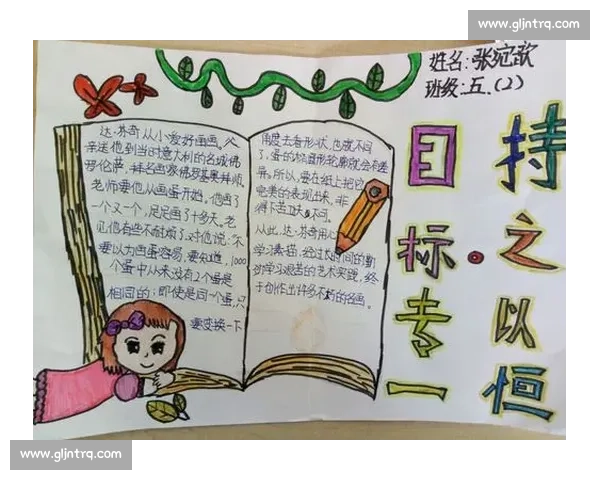 www.gljntrq.com
姓名:张宛歆
班级:五.(2)
持之以恒
目标·专一
达·芬奇从小爱好画画。父
亲送他到当时意大利的名城佛
罗伦萨,拜名画家佛罗基奥为师。
老师要他从画蛋开始。他画了
一个又一个,足足画了十多天。老
见他有些不耐烦了,对他说:“不
要以为画蛋容易,要知道,1000
个蛋中从来没有2个蛋是
相同的;即使是同一个蛋,只
要变换一下
角度去看形状,也就不同
了,蛋的椭圆形轮廓就会有差
异。所以,要在纸上把它
完美的表现出来,非
得下苦工夫不可。
从此,达·芬奇用心
学习素描,经过长时间的勤
奋学习艰苦的艺术实践,终
于创作出许多不朽的名画。
www.gljntrq.com